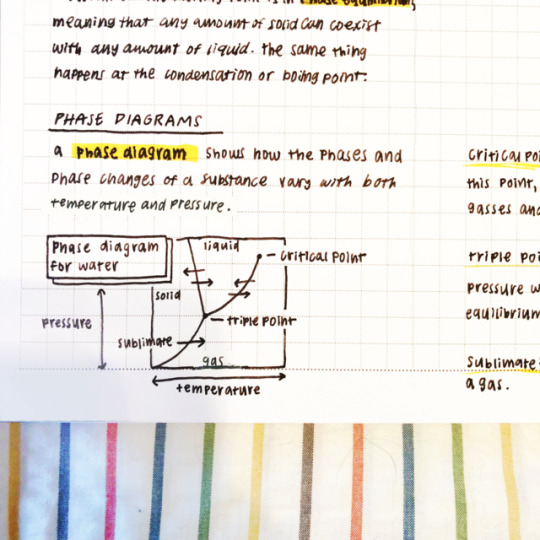 phase equilibrium,
meaning that any amount of solid can coexist
with any amount of liquid. the same thing
happens at the condensation or boing point.
PHASE DIAGRAMS
a phase diagram shows how the phases and
phase changes of a substance vary with both
temperature and pressure.
Phase diagram
for water
liquid
critical point
solid
pressure
triple point
sublimate
gas
temperature
critical poi
this point,
gasses and
triple poi
pressure w
equilibrium
sublimate:
a gas.